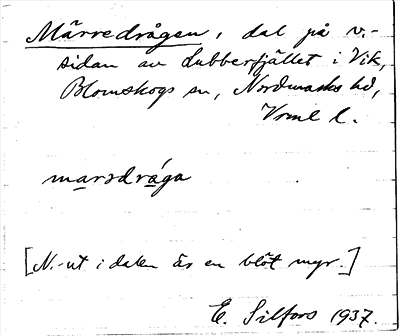 Märredrågen, dal på v.-
sidan av Lubberfjället i Vik,
Blomskogs sn, Nordmarks hd,
Vrml l.
marsdråga
[N.-ut i dalen är en blöt myr.]
E. Silfors 1937.